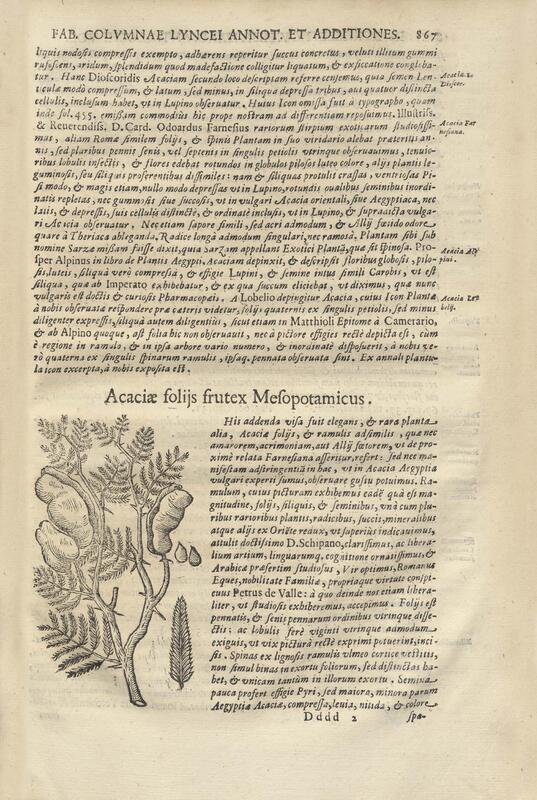 FAB. COLVMNAE LYNCEI ANNOT. ET ADDITIONES. 867
liquis nodosis compressis exempto, adhærens reperitur succus concretus, veluti illisum gummi
rufescens, aridum, splendidum quod madefactione colligitur liquatum, & exiccatione congloba-
tur. Hanc Dioscoridis Acaciam secundo loco descriptam referre censemus, quia semen Len-
ticulæ modò compressum, & latum, sed minus, in siliqua depressa tribus, aut quatuor distincta
cellulis, inclusum habet, vt in Lupino obseruatur. Huius Icon omissa fuit à typographo, quam
inde fol. 455. emissam commodius hic prope nostram ad differentiam reposuimus. Illustriss.
& Reuerendiss. D. Card. Odoardus Farnesius rariorum stirpium exoticarum studiosissi-
mus, aliam Romæ similem folijs, & spinis Plantam in suo viridario alebat præteritis an-
nis, sed pluribus pennis senis, vel septenis in singulis petiolis vtrinque obseruauimus, tenuio-
ribus lobulis infectis, & flores edebat rotundos in globulos pilosos luteo colore, alijs plantis le-
guminosis, seu siliquis proferentibus dissimiles: nam & siliquas protulit crassas, ventriosas Pi-
si modo, & magis etiam, nullo modo depressas vt in Lupino, rotundis oualibus seminibus inordi-
natis repletas, nec gummosis siue succosis, vt in vulgari Acacia orientali, siue Aegyptiaca, nec
latis, & depressis, suis cellulis distinctis, & ordinatè inclusis, vt in Lupino, & supradicta vulga-
ri Acacia obseruatur. Nec etiam sapore simili, sed acri admodum, & Allij fœtido odore,
quare à Theriaca ableganda. Radice longà admodum singulari, nec ramosa. Plantam sibi sub
nomine Sarzæ missam fuisse dixit, quia Sarzam appellant Exotici Plantã, quæ sit spinosa. Pro-
sper Alpinus in libro de Plantis Aegypti, Acaciam depinxit, & descripsit floribus globosis, pilo-
sis, luteis, siliquà verò compressa, & effigie Lupini, & semine intus simili Carobis, vt est
siliqua, quæ ab Imperato exhibebatur, & ex qua succum eliciebat, vt diximus, quæ nunc
vulgaris est doctis & curiosis Pharmacopæis. A Lobelio depingitur Acacia, cuius Icon Plantæ
à nobis obseruatæ respondere præ cæteris videtur, folijs quaternis ex singulis petiolis, sed minus
diligenter expressis, siliquà autem diligentiùs, sicut etiam in Matthioli Epitome à Camerario,
& ab Alpino quoque, ast folia bis non obseruauit, nec à pictore effigies rectè depicta est, cùm
è regione in ramulo, & in ipsa arbore vario numero, & inordinatè disposuerit, à nobis ve-
rò quaterna ex singulis spinarum ramulis, ipsaq. pennata obseruata sint. Ex annali plantu-
la icon excerpta, à nobis exposita est.
Acacia 2.
Dioscor.
Acacia Far
nesiana.
Acacia Al-
pini.
Acacia Lo-
belij.
Acaciæ folijs frutex Mesopotamicus.
His addenda visa fuit elegans, & rara planta
alia, Acaciæ folijs, & ramulis adsimilis, quæ nec
amarorem, acrimoniam, aut Allij fœtorem, vt de pro-
ximè relata Farnesiana asseritur, refert: sed nec ma-
nifestam adstringentiã in hac, vt in Acacia Aegyptia
vulgari experti sumus, obseruare gustu potuimus. Ra-
mulum, cuius picturam exhibemus eadẽ quà est ma-
gnitudine, folijs, siliquis, & seminibus, vnà cum plu-
ribus rarioribus plantis, radicibus, succis, mineralibus
atque alijs ex Oriẽte redux, vt superiùs indicauimus,
attulit doctissimo D. Schipano, clarissimus, ac libera-
lium artium, linguarumq. cognitione ornatissimus, &
Arabicæ præsertim studiosus, Vir optimus, Romanus
Eques, nobilitate Familiæ, propriaque virtute conspi-
cuus Petrus de Valle: à quo deinde nos etiam libera-
liter, vt studiosis exhiberemus, accepimus. Folijs est
pennatis, & senis pennarum ordinibus vtrinque disse-
ctis; ac lobulis ferè viginti vtrinque admodum
exiguis, vt vix picturà rectè exprimi potuerint, inci-
sis. Spinas ex lignosis ramulis vlmeo cortice vestitis,
non simul binas in exortu foliorum, sed distinctas ha-
bet, & vnicam tantùm in illorum exortu. Semina
pauca profert effigie Pyri, sed maiora, minora parum
Aegyptiæ Acaciæ, compressa, leuia, nitida, & colore
Dddd 2 spa-